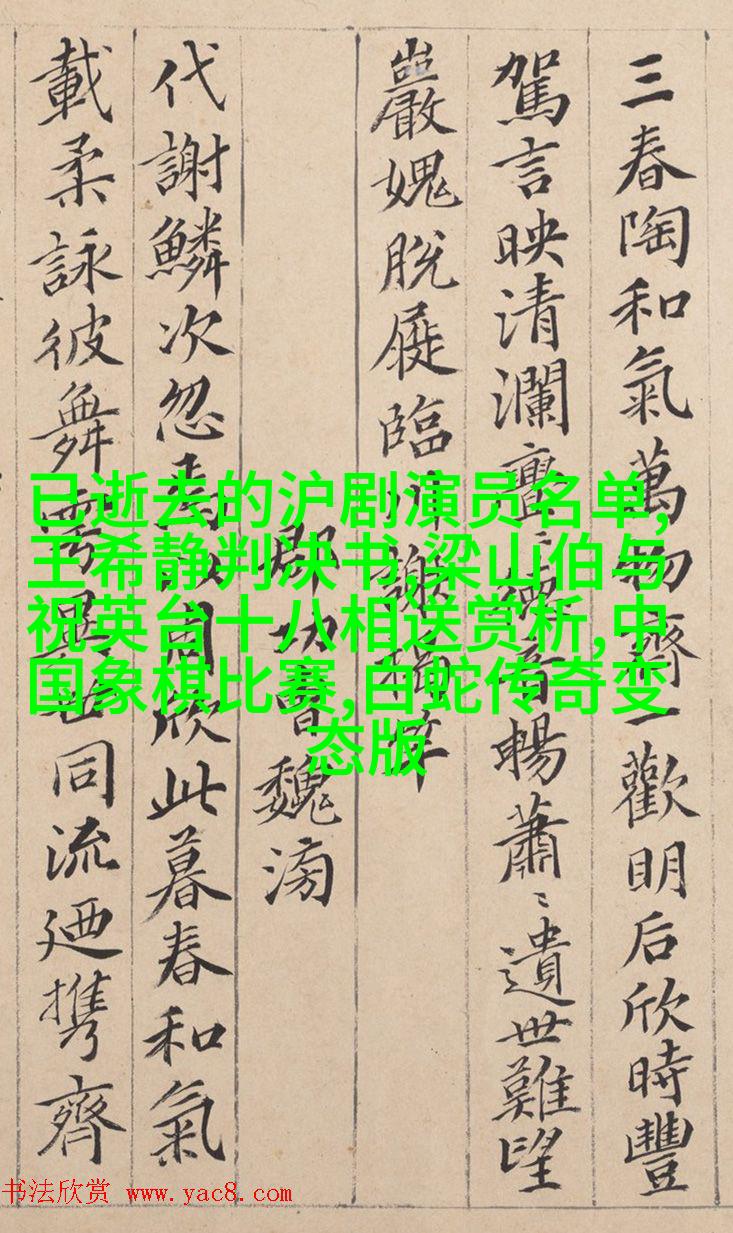 三春陶和氣萬物齊一歡明后欣時豐
駕言映清瀾亹〻德音暢蕭〻遺世難望
巖愧脫屣臨川謝揭竿
郡功曹魏滂
代謝鱗次忽焉以周欣此暮春和氣
載柔詠彼舞雩異世同流迺携齊
已逝去的沪剧演员名单,
王希静判决书,梁山伯与
祝英台十八相送赏析,中
国象棋比赛,白蛇传奇变
态版
书法欣赏 www.yac8.com